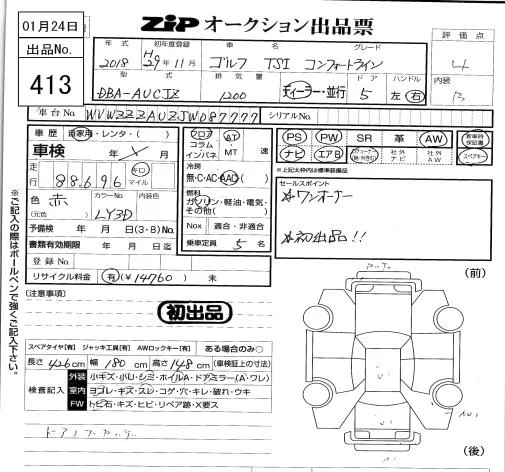 01月24日
出品No.
413
ZiP オークション出品票
評価点
4
内装
B
年式
2018
初年度登録
H29年11月
車名
ゴルフ TSI
グレード
コンフォートライン
型式
DBA-AUCJZ
排気量
1200
ディーラー・並行
ドア
5
ハンドル
左・右
車台No.
WVWZZZAUZJW087777
シリアルNo.
車歴
自家用・レンタ・( )
車検
年 月
走行
88,696
キロ
マイル
色
(元色)
赤
カラーNo.
LY3D
内装色
予備検 年 月 日(3・8)No.
書類有効期限 年 月 日迄
登録No.
リサイクル料金
有(¥14760) 無
フロア
コラム
インパネ
AT
MT
速
冷房
無・C・AC・AAC
燃料
ガソリン・軽油・電気・
その他( )
Nox 適合・非適合
乗車定員 5 名
PS PW SR 革 AW
新車時
保証書
ナビ エアB
社外
ナビ
社外
AW
スペアキー
※上記太枠内は標準装備品
セールスポイント
☆ワンオーナー
☆初出品!!
(注意事項)
初出品
スペアタイヤ[有] ジャッキ工具[有] AWロックキー[有] ある場合のみ○
長さ 426 cm 幅 180 cm 高さ 148 cm (車検証上の寸法)
検査記入
外装 小キズ・小U・シミ・ホイルA・ドアミラー(A・ワレ)
室内 ヨゴレ・キズ・スレ・コゲ・穴・キレ・破れ・ウキ
FW トビ石・キズ・ヒビ・リペア跡・X要ス
(前)
(後)
※ご記入の際はボールペンで強くご記入下さい。